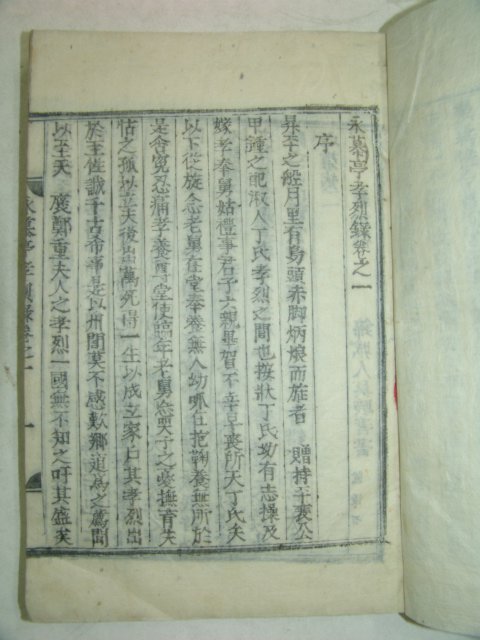 永慕亭孝烈錄卷之一
序
昇平之艅月里有烏頭赤脚炳烺而旌者 贈持平裵公
甲鍾之配淑人丁氏孝烈之閭也按狀丁氏幼有志操及
嫁孝奉舅姑禮事君子六親畢賀不幸早喪所天丁氏矢
以下從旋念老舅在堂奉養無人幼孤在抱鞠養無所於
是含寃忍痛孝養尊堂使臨年老舅忘哭子之憂撫育失
怙之孤以至天後出萬死得一生以成立家戶其孝烈出
於至性誠千古希事是以州閭莫不感歎鄕道爲之薦聞
以至天 廣鄭重夫人之孝烈一國無不知之吁其盛矣
永慕亭孝烈錄卷之一 一